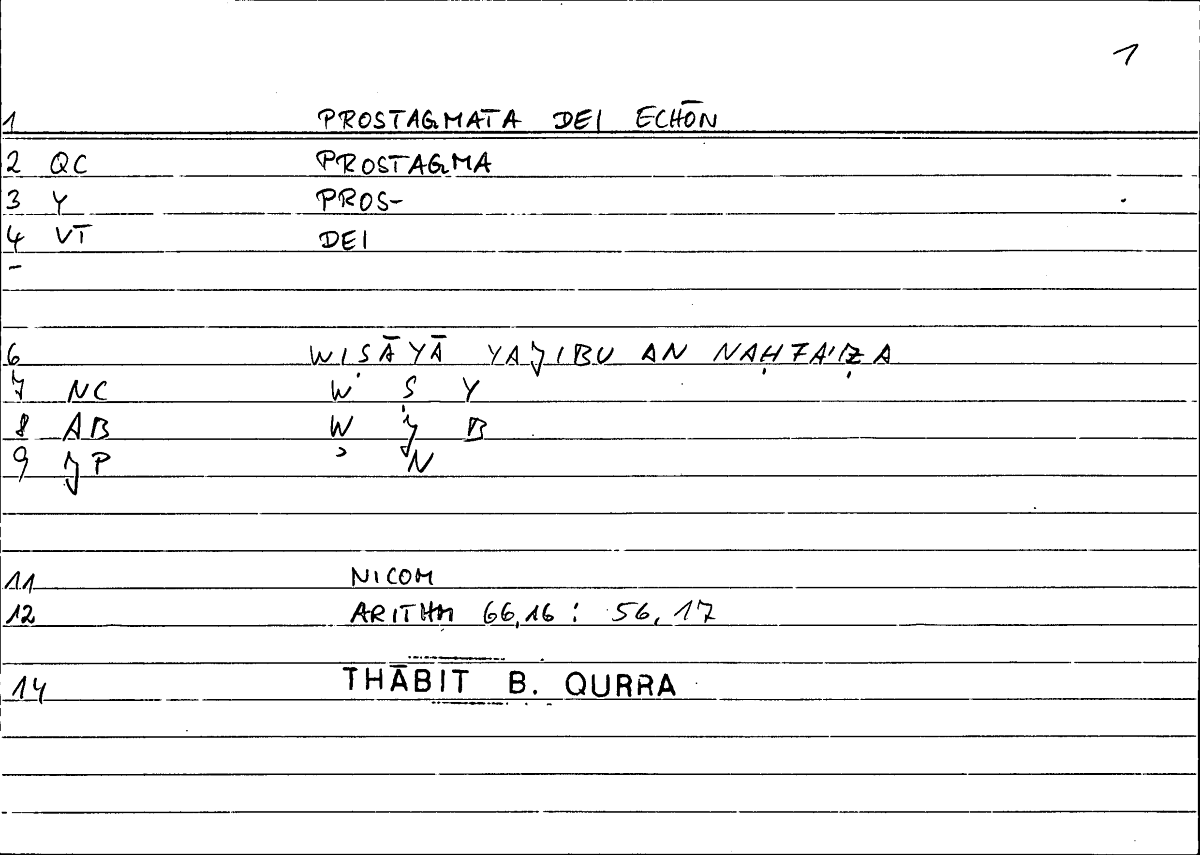 1
1 PROSTAGMATA DEI ECHŌN
2 QC PROSTAGMA
3 Y PROS-
4 VT DEI
-
6 WIṢĀYĀ YAJIBU AN
7 NC W Ṣ Y
8 AB W J B
9 JP ʾ N
11 NICOM
12 ARITHM 66,16 : 56,17
14 THĀBIT B. QURRA